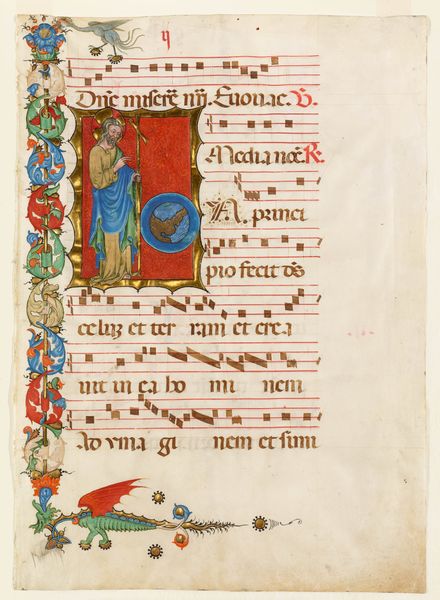 ij
Dñe miserẽ mi. Euouae. V.
Media noc̃. R.
IN. princi
pio fecit ds̃
celuz et ter ram et crea
uit in ea ho mi nem
Ad yma gi nem et simi